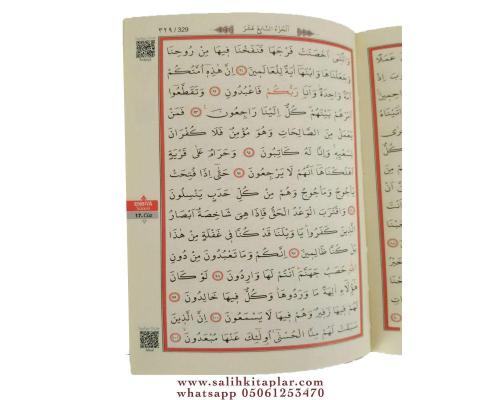 ٣٢٩ / 329
الجزء السابع عشر
وَالَّتٖٓي اَحْصَنَتْ فَرْجَهَا فَنَفَخْنَا فٖيهَا مِنْ رُوحِنَا
وَجَعَلْنَاهَا وَابْنَهَٓا اٰيَةً لِلْعَالَمٖينَ ﴿٩١﴾ اِنَّ هٰذِهٖٓ اُمَّتُكُمْ
اُمَّةً وَاحِدَةً وَاَنَا۬ رَبُّكُمْ فَاعْبُدُونِ ﴿٩٢﴾ وَتَقَطَّعُٓوا
اَمْرَهُمْ بَيْنَهُمْ كُلٌّ اِلَيْنَا رَاجِعُونَ ﴿٩٣﴾ فَمَنْ
يَعْمَلْ مِنَ الصَّالِحَاتِ وَهُوَ مُؤْمِنٌ فَلَا كُفْرَانَ
لِسَعْيِهٖ وَاِنَّا لَهُ كَاتِبُونَ ﴿٩٤﴾ وَحَرَامٌ عَلٰى قَرْيَةٍ
اَهْلَكْنَاهَٓا اَنَّهُمْ لَا يَرْجِعُونَ ﴿٩٥﴾ حَتّٰٓى اِذَا فُتِحَتْ
يَأْجُوجُ وَمَأْجُوجُ وَهُمْ مِنْ كُلِّ حَدَبٍ يَنْسِلُونَ ﴿٩٦﴾
وَاقْتَرَبَ الْوَعْدُ الْحَقُّ فَاِذَا هِيَ شَاخِصَةٌ اَبْصَارُ
الَّذٖينَ كَفَرُوا يَا وَيْلَنَا قَدْ كُنَّا فٖي غَفْلَةٍ مِنْ هٰذَا
بَلْ كُنَّا ظَالِمٖينَ ﴿٩٧﴾ اِنَّكُمْ وَمَا تَعْبُدُونَ مِنْ دُونِ
اللّٰهِ حَصَبُ جَهَنَّمَ اَنْتُمْ لَهَا وَارِدُونَ ﴿٩٨﴾ لَوْ كَانَ
هٰٓؤُ۬لَٓاءِ اٰلِهَةً مَا وَرَدُوهَا وَكُلٌّ فٖيهَا خَالِدُونَ ﴿٩٩﴾
لَهُمْ فٖيهَا زَفٖيرٌ وَهُمْ فٖيهَا لَا يَسْمَعُونَ ﴿١٠٠﴾ اِنَّ الَّذٖينَ
سَبَقَتْ لَهُمْ مِنَّا الْحُسْنٰٓى اُو۬لٰٓئِكَ عَنْهَا مُبْعَدُونَ ﴿١٠١﴾
ENBİYA
17.
www.salihkitaplar.com
whatsapp 05061253470